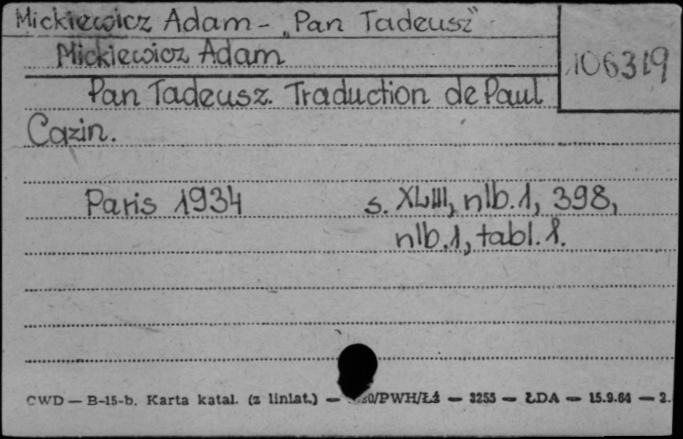 Mickiewicz Adam - „Pan Tadeusz"
Mickiewicz Adam
106319
Pan Tadeusz. Traduction de Paul
Cazin.
Paris 1934 s. XLIII, nlb. 1, 398,
nlb. 1, tabl. 1.
CWD — B-15-b. Karta katal. (z liniat.) — /PWH/Łź — 3255 — ŁDA — 15.9.64 — 2.